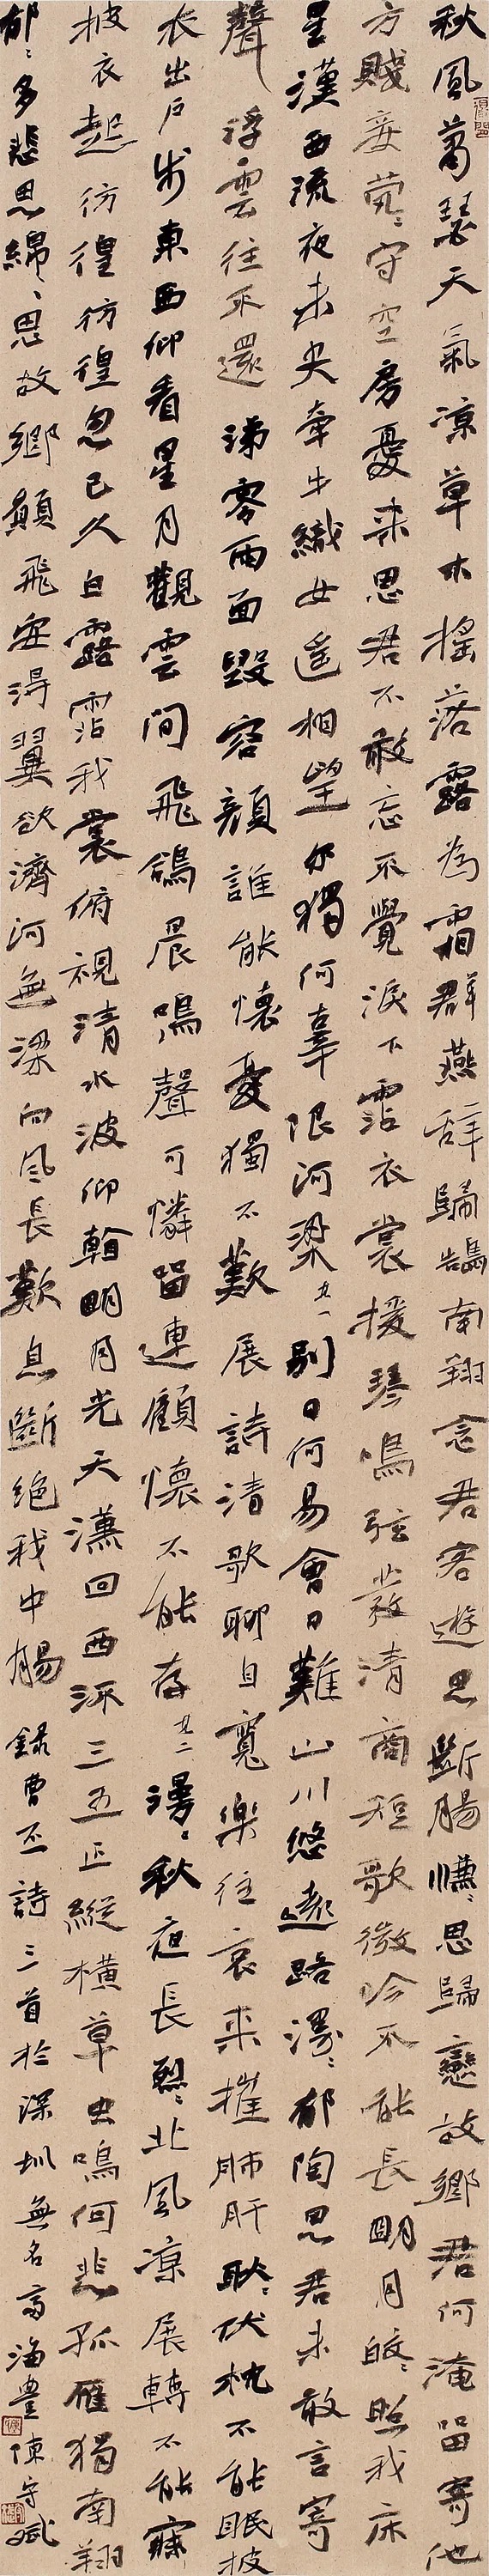 秋風蕭瑟天氣涼草木搖落露為霜群燕辞歸鵠南翔念君客遊思斷腸慊〻思歸戀故鄉君何淹留寄他
方賤妾煢〻守空房憂来思君不敢忘不覺淚下霑衣裳援琴鳴弦發清商短歌微吟不能長明月皎〻照我床
星漢西流夜未央牽牛織女遥相望尔獨何辜限河梁 其一 別日何易會日難山川悠遠路漫〻郁陶思君未敢言寄
聲浮雲往不還涕零雨面毀容顏誰能懷憂獨不歎展詩清歌聊自寬樂往哀来摧肺肝耿〻伏枕不能眠披
衣出户步東西仰看星月觀雲間飛鴿晨鳴聲可憐留連顧懷不能存 其二 漫〻秋夜長烈〻北風凉展轉不能寐
披衣起彷徨彷徨忽已久白露霑我裳俯視清水波仰看明月光天漢回西流三五正縱橫草虫鳴何悲孤雁獨南翔
郁〻多悲思綿〻思故鄉願飛安得翼欲濟河無梁向風長歎息斷絕我中腸 録曹丕詩三首於深圳無名齋海豊陳守斌